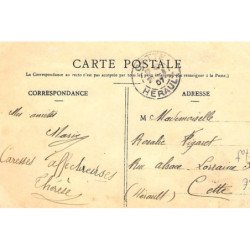 CARTE POSTALE
La Correspondance au recto n'est pas acceptée par tous les pays étrangers (Se renseigner à la Poste.)
HERAULT
07
CORRESPONDANCE
ADRESSE
Mes amitiés
Marie
Caresses affectueuses
Thérèse
M Mademoiselle
Rosalie
Rue Alsace Lorraine
Cette
(Hérault)